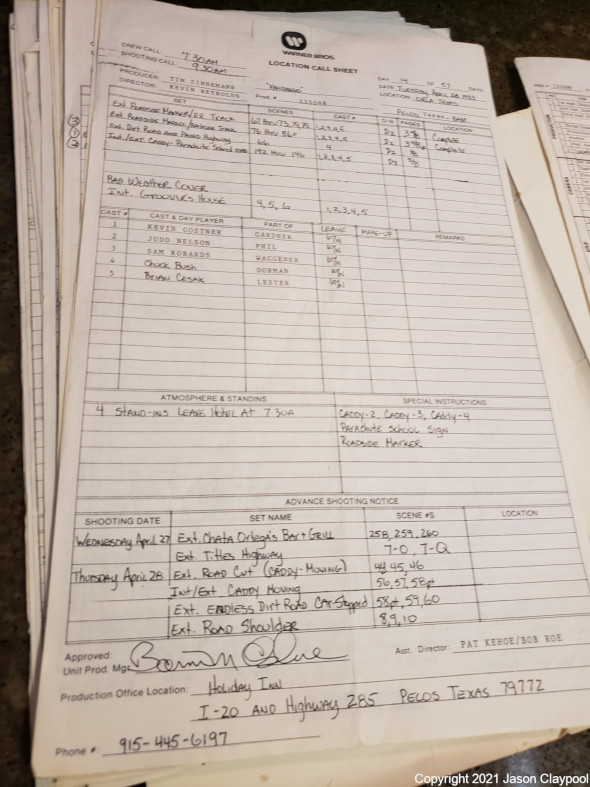 WARNER BROS.
LOCATION CALL SHEET
CREW CALL: 7:30AM
SHOOTING CALL 9:30AM
PRODUCER: TIM ZINNEMANN
DIRECTOR: KEVIN REYNOLDS
"FANDANGO"
PROD. # 135098
DAY 14 OF 57 DAYS
DATE Tuesday April
LOCATION TEXAS
SET SCENES CAST # D/N PAGES LOCATION
PECOS TEXAS BASE
Ext. Roadside Marker/RR Track 67 thru 73, 74, 75 1,2,3,4,5 D2 Complete
Ext. Roadside 76 thru 86 1,2,3,4,5 D2 Complete
Ext. Dirt Road and Paved Highway 66 4 D2
Int./Ext. Caddy - Parachute School 192 thru 196 1,2,3,4,5 D2 5/8
Bad Weather Cover
Int. Groover's House 4, 5, 6 1,2,3,4,5
CAST # CAST & DAY PLAYER PART OF LEAVE MAKE-UP REMARKS
1 KEVIN COSTNER GARDNER W/N
2 JUDD NELSON PHIL W/N
3 SAM ROBARDS WAGGENER W/N
4 Chuck Bush DORMAN W/N
5 Brian Cesak LESTER W/N
ATMOSPHERE & STANDINS SPECIAL INSTRUCTIONS
4 STAND-INS LEAVE HOTEL AT 7:30A CADDY-2, CADDY-3, CADDY-4
PARACHUTE SCHOOL SIGN
ROADSIDE MARKER
ADVANCE SHOOTING NOTICE
SHOOTING DATE SET NAME SCENE #S LOCATION
Wednesday April 27 Ext. Chata Ortega's Bar + Grill 258, 259, 260
Ext. Titles Highway 7-O, 7-Q
Thursday April 28 Ext. Road Cut (CADDY-MOVING) 44, 45, 46
Int/Ext. CADDY MOVING 56, 57, 58pt
Ext. ENDLESS DIRT ROAD CAR-Stopped 58pt, 59, 60
Ext. Road Shoulder 8, 9, 10
Approved:
Unit Prod. Mgr.
Asst. Director: PAT KEHOE/BOB ROE
Production Office Location: Holiday Inn
I-20 AND Highway 285 PECOS TEXAS 79772
Phone #: 915-445-6197
Copyright © 2021 Jason Claypool